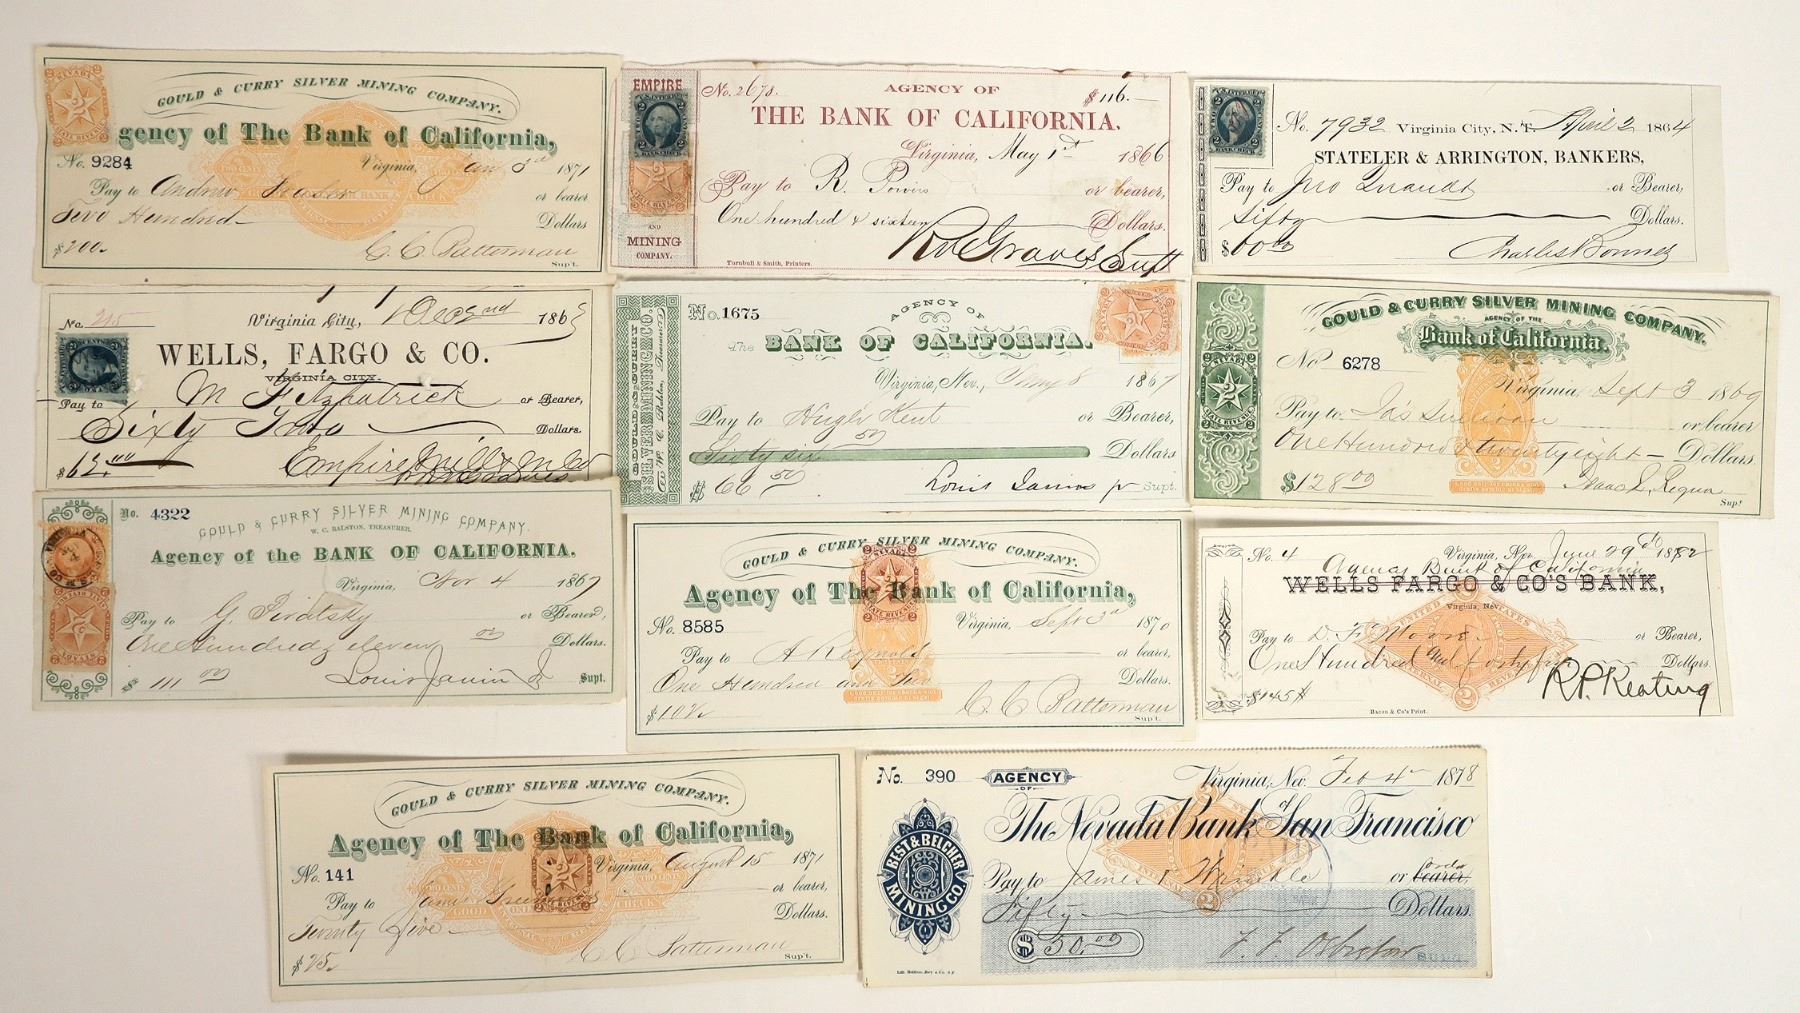 GOULD & CURRY SILVER MINING COMPANY.
gency of The Bank of California,
No. 9284 Virginia, Jan 3rd 1871
Pay to Andrew Fraser or bearer
Two Hundred Dollars
$200. C. C. Batterman
Sup't.
EMPIRE
AND
MINING
COMPANY.
No. 2678. AGENCY OF $116.
THE BANK OF CALIFORNIA.
Virginia, May 1st 1866
Pay to R. Powers or bearer,
One hundred & sixteen Dollars.
Graves Supt
Turnbull & Smith, Printers.
No. 7932 Virginia City, N. T. April 2 1864
STATELER & ARRINGTON, BANKERS,
Pay to Jno or Bearer,
Dollars.
Charles Bonner
No. 215 Virginia City, Dec 2nd 186
WELLS, FARGO & CO.
VIRGINIA CITY.
Pay to M Fitzpatrick or Bearer,
Sixty Two Dollars.
$62.00 Empire Mill & M Co
GOULD & CURRY
SILVER MINING CO.
W. C. Ralston, Treasurer
No. 1675 AGENCY OF
The BANK OF CALIFORNIA.
Virginia, Nev., May 8 1867
Pay to Hugh Kent or Bearer,
Sixty six 50 Dollars
$66 50 Louis Janin jr Supt.
GOULD & CURRY SILVER MINING COMPANY.
AGENCY OF THE
Bank of California.
No 6278 Virginia, Sept 3 1869
Pay to Jas Sullivan or bearer
One Hundred & twenty eight Dollars.
$128.00 Isaac L. Requa
Sup't
No. 4322 GOULD & CURRY SILVER MINING COMPANY.
W. C. RALSTON, TREASURER.
Agency of the BANK OF CALIFORNIA.
Virginia, Nov 4 1867
Pay to G. or Bearer,
One Hundred & eleven 00 Dollars.
$ 111 00 Louis Janin Jr Supt.
GOULD & CURRY SILVER MINING COMPANY.
Agency of The Bank of California,
No. 8585 Virginia, Sept 3d 1870
Pay to A Reynolds or bearer,
One Hundred and two Dollars.
$102. C. C. Batterman
Sup't.
No. 4 Virginia, Nev. June 29th 1882
Agency Bank of California
WELLS FARGO & CO'S BANK,
Virginia, Nev.
Pay to D. F. Moore or Bearer,
One Hundred and forty five Dollars.
$145 R. P. Keating
Bacon & Co's Print.
GOULD & CURRY SILVER MINING COMPANY.
Agency of The Bank of California,
No. 141 Virginia, August 15 1871
Pay to James or bearer,
Twenty Five Dollars.
$25. C. C. Batterman
Sup't.
No. 390 AGENCY OF Virginia, Nev. Feb 4 1878
The Nevada Bank of San Francisco
BEST & BELCHER
MINING CO.
Pay to James T. Wrinkle or bearer
order
Fifty Dollars.
$ 50.00 F. F. Osbiston
SUPT.